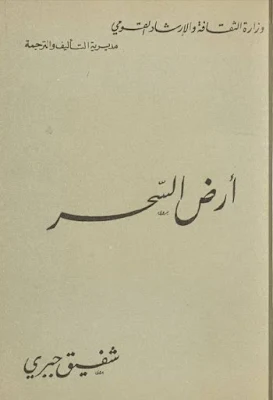 وزارة الثقافة والإرشاد القومي
مديرية التأليف والترجمة
أرض السّحر
شفيق جبري